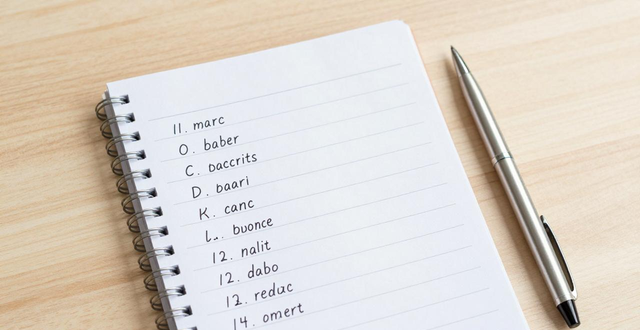 11. marc
O. baber
C. baccrits
D. baari
K. canc
L.. buonce
12. nalit
12. dabo
12. reduc
14. omert